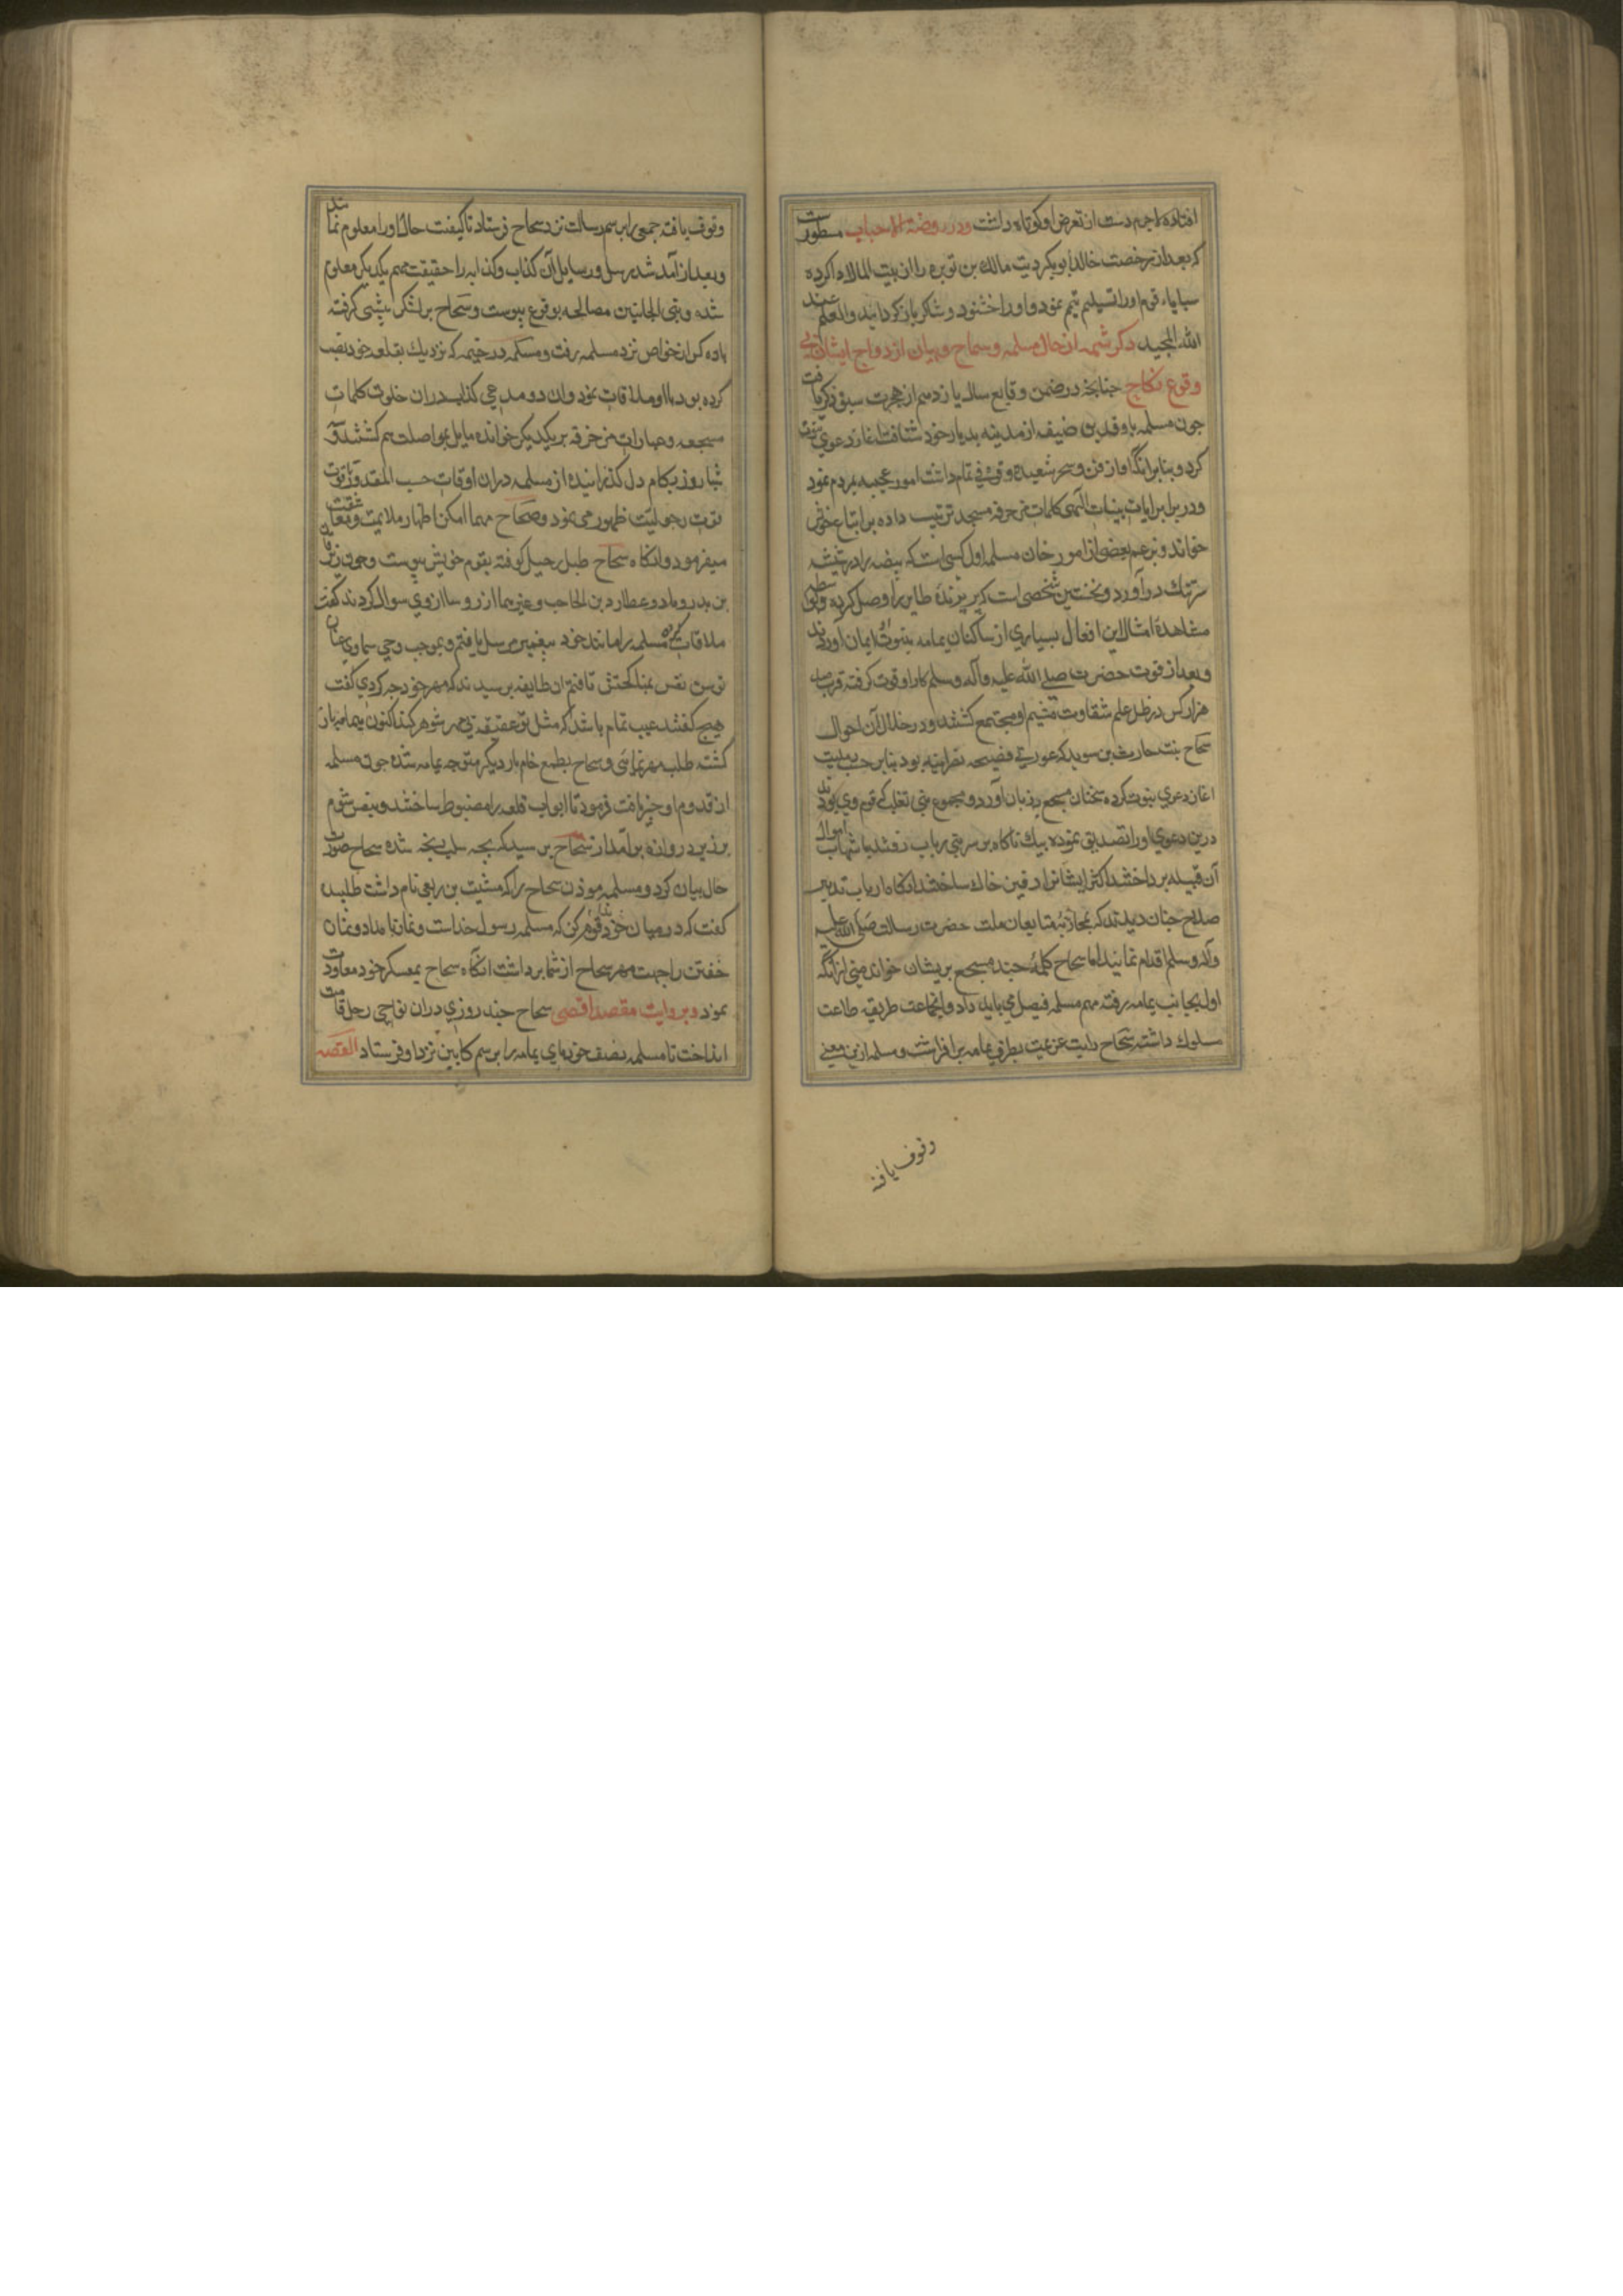 افتاده لاجرم دست از تعرض او کوتاه داشت ودر روضة الاحباب مسطورست
که بعد از رخصت خالد ابوبکر دیت مالک بن نویره را از بیت المال ادا کرده
سبایاء قوم او را تسلیم نمود و او را خشنود و شاکر باز کردانید والعلم عند
الله المجید ذکر شمه از حال مسلمه و سجاح و بیان ازدواج ایشان بی
وقوع نکاح چنانچه در ضمن وقایع سال یازدهم از هجرت سبق ذکر یافت
چون مسلمه با وفد بنی حنیفه از مدینه بدیار خود شتافت آغاز دعوی نبوت
کرد و بنابر آنکه از فن و سحر و شعبده وقوفی تمام داشت امور عجیبه بمردم نمود
ودر برابر ایات بینات الهی کلمات مزخرفه مسجع ترتیب داده بر اتباع خویش
خواند و بزعم بعضی از مورخان مسلمه اول کسی است که بیضه را در شیشه
سرتنک در آورد و نخستین شخصی است که پر پرنده طایر را وصل کرده
مشاهدۀ امثال این افعال بسیاری از ساکنان یمامه بنبوت او ایمان آوردند
وبعد از فوت حضرت صلی الله علیه وآله وسلم کار او قوت کرفته قرب صد
هزار کس در ظل علم شقاوت او مجتمع کشتند و در خلال آن احوال
سجاح بنت حارث بن سوید که عورتی فصیحه نصرانیه بود بنابر حب
اغاز دعوی نبوت کرده سخنان مسجع بر زبان آورد و مجموع بنی تغلب که قوم وی بودند
درین دعوی او را تصدیق نموده بیک ناکاه بر سر بنی رباب رفتند
آن قبیله پرداختند اکثر ایشانرا دفین خاک ساختند انکاه ارباب تدبیر
صلاح چنان دیدند که بمحاربۀ متابعان ملت حضرت رسالت صلی الله علیه
وآله وسلم اقدام نمایند اما سجاح کلمۀ چند مسجع بریشان خواند مبنی از آنکه
اول بجانب یمامه رفته مهم مسلمه فیصل می باید داد و آنجماعت طریقه طاعت
مسلوک داشته سجاح رایت عزیمت بطرف یمامه برافراشت و مسلمه ازین معنی
وقوف یافته
وقوف یافته جمعی را برسم رسالت نزد سجاح فرستاد تا کیفیت حال او را معلوم نمایند
وبعد از آمد شد رسل و رسایل آن کذاب و کذابه را حقیقت مهم یکدیکر معلوم
شده و بین الجانبین مصالحه بوقوع پیوست و سجاح بر لشکر پیشی کرفته
باده کس از خواص نزد مسلمه رفت و مسلمه در خیمه که نزدیک بقلعه خود نصب
کرده بود با او ملاقات نمود و آن دو مدعی کذاب در آن خلوت کلمات
مسجعه و عبارات مزخرفه بر یکدیکر خوانده مایل بمواصلت هم کشتند
شبا روز بکام دل کذرانیده از مسلمه در آن اوقات حسب المقدور
قوت رجولیت ظهور می نمود و سجاح مهما امکن اظهار ملایمت
میفرمود و انکاه سجاح طبل رحیل کوفته بقوم خویش پیوست و چون زبرقان
بن بدر و عطارد بن الحاجب و غیرهما از روسا از وی سوال کردند کفت
ملاقات کرده مسلمه را مانند خود پیغمبر مرسل یافتم و بموجب وحی سماوی عنان
توسن نفس بمناکحتش تافتم آن طایفه پرسیدند که مهر خود چه کردی کفت
هیچ کفتند عیب تمام باشد که مثل تو عفیفه بی مهر شوهر کند اکنون بیمامه باز
کشته طلب مهر نمای و سجاح بطمع خام بار دیکر متوجه یمامه شده چون مسلمه
از قدوم او خبر یافت فرمود تا ابواب قلعه را مضبوط ساختند و بنفس شوم
بر زبر دروازه برآمد از سجاح پرسید که بچه سبب رنجه شده سجاح صورت
حال بیان کرد و مسلمه موذن سجاح را که شیث بن ربعی نام داشت طلبیده
کفت که در میان قوم خود ندا کن که مسلمه رسول خداست و نماز بامداد و نماز
خفتن را جهت مهر سجاح از شما برداشت آنکاه سجاح بمعسکر خود معاودت
نمود و بروایت مقصد اقصی سجاح چند روزی در آن نواحی رحل اقامت
انداخت تا مسلمه نصف خرمای یمامه را برسم کابین نزد او فرستاد القصه